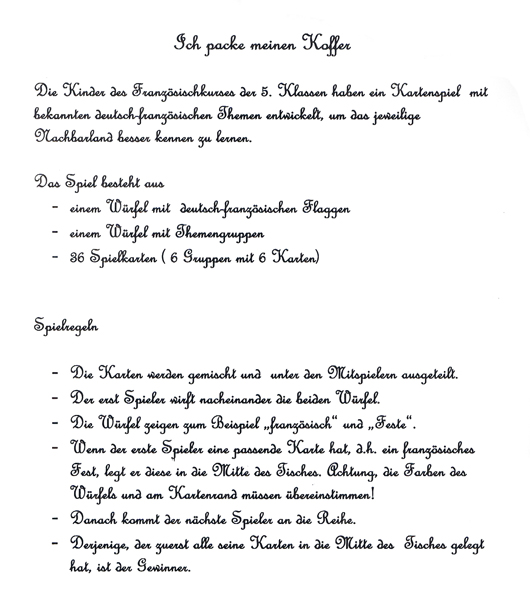 Ich packe meinen Koffer
Die Kinder des Französischkurses der 5. Klassen haben ein Kartenspiel mit
bekannten deutsch-französischen Themen entwickelt, um das jeweilige
Nachbarland besser kennen zu lernen.
Das Spiel besteht aus
- einem Würfel mit deutsch-französischen Flaggen
- einem Würfel mit Themengruppen
- 36 Spielkarten ( 6 Gruppen mit 6 Karten)
Spielregeln
- Die Karten werden gemischt und unter den Mitspielern ausgeteilt.
- Der erst Spieler wirft nacheinander die beiden Würfel.
- Die Würfel zeigen zum Beispiel „französisch“ und „Feste“.
- Wenn der erste Spieler eine passende Karte hat, d.h. ein französisches
Fest, legt er diese in die Mitte des Tisches. Achtung, die Farben des
Würfels und am Kartenrand müssen übereinstimmen!
- Danach kommt der nächste Spieler an die Reihe.
- Derjenige, der zuerst alle seine Karten in die Mitte des Tisches gelegt
hat, ist der Gewinner.